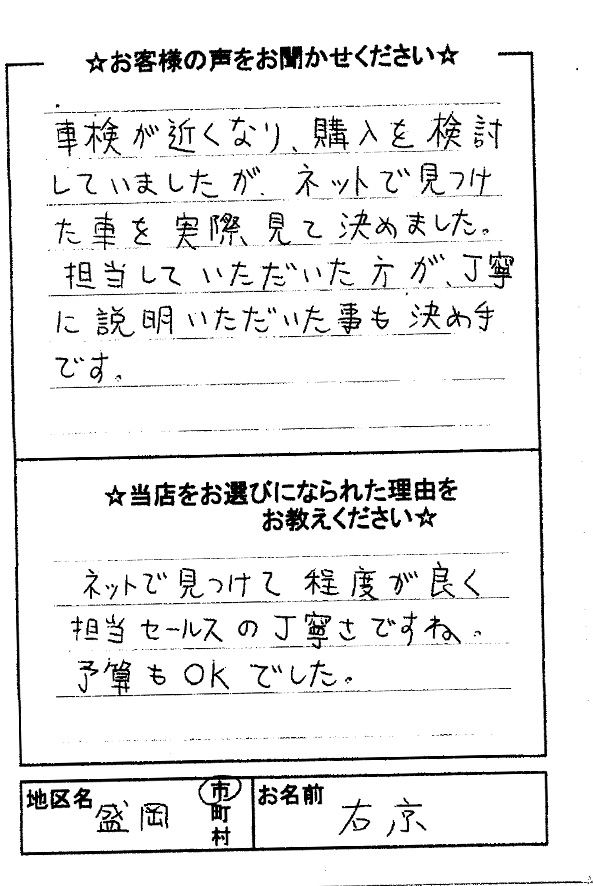 ☆お客様の声をお聞かせください☆
車検が近くなり、購入を検討
していましたが、ネットで見つけ
た車を実際、見て決めました。
担当していただいた方が、丁寧
に説明いただいた事も決め手
です。
☆当店をお選びになられた理由を
お教えください☆
ネットで見つけて程度が良く
担当セールスの丁寧さですね。
予算もOKでした。
地区名 盛岡 市町村 お名前 右京